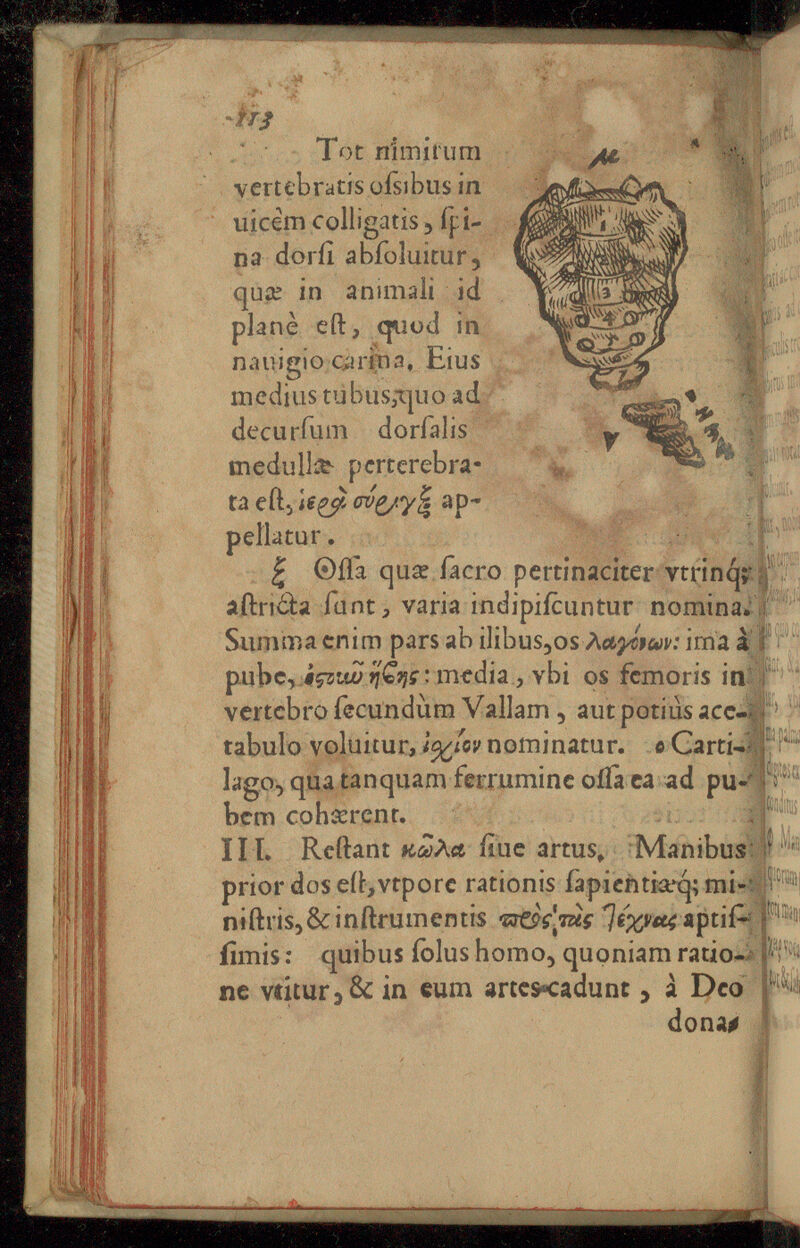 113
Tot nimirum
vertebratis ofsibus in
uicém colligatis, ſpi-
na dorſi abſoluitur,
quæ in animali id
planè eſt, quod in
nauigio carina, Eius
medius tubus, quo ad
decurſum dorſalis
medullæ perterebra-
ta eſt, ἱερὰ σύριγξ ap-
pellatur.
ξ Oſſa quæ ſacro pertinaciter vtrinq;
aſtricta ſunt, varia indipiſcuntur nomina.
Summa enim pars ab ilibus, os λαγόνων: ima à
pube, ὀστοῦν ἥβης: media, vbi os femoris in
vertebro ſecundùm Vallam, aut potiùs ace-
tabulo voluitur, ἰσχίον nominatur. ο Carti-
lago, qua tanquam ferrumine oſſa ea ad pu-
bem cohærent.
III. Reſtant κῶλα ſiue artus, Manibus
prior dos eſt, vtpore rationis ſapientiæq; mi-
niſtris, & inſtrumentis πρὸς τὰς τέχνας aptiſ-
ſimis: quibus ſolus homo, quoniam ratio-
ne vtitur, & in eum artes cadunt, à Deo
dona-